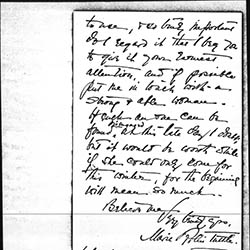 to use, & so truly important
do I regard it that I beg you
to give it your earnest
attention, and if possible
put me in touch with a
strong & able woman.
If such an one can be
found, at this late day, I doubt,
but it would be worth while
if she could only come for
this winter, for the beginning
will mean so much.
Believe me
Very truly yrs,
Marie